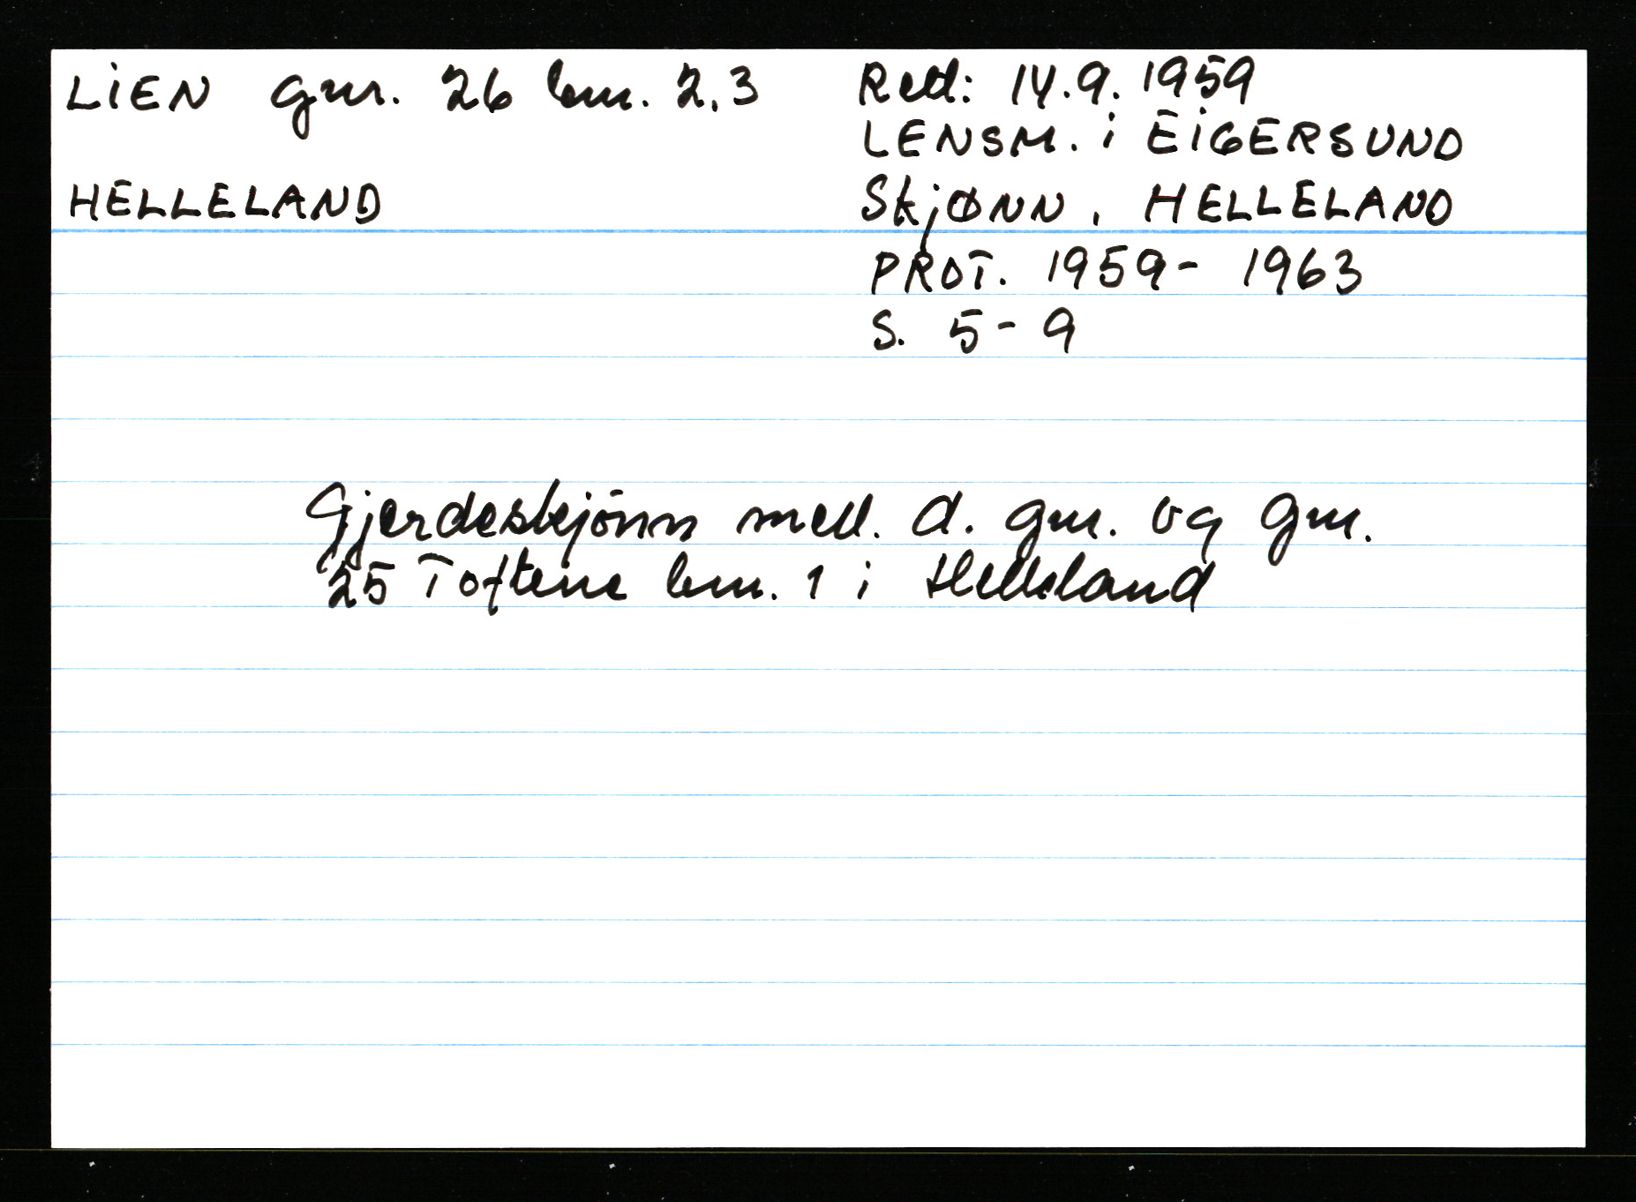 LiEN gnr. 26 bnr. 2,3
HELLELAND
Red: 14.9.1959
LENSM. i EiGERSUND
SkjØNN, HELLELAND
PROT. 1959-1963
S. 5-9
Gjerdeskjönn mell. d. gnr. og gnr.
25 Toftene bnr. 1 i Helleland